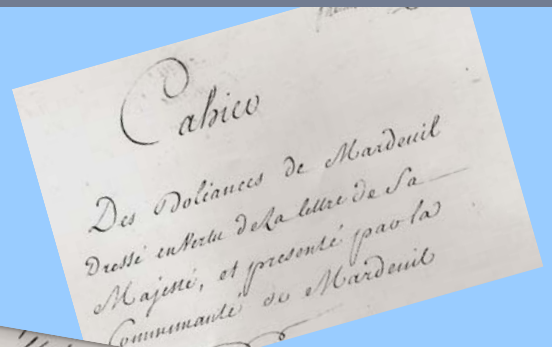 Cahier
Des Doléances de Mardeuil
Dressé en Vertu de La lettre de Sa
Majesté, et presenté par la
Communauté de Mardeuil